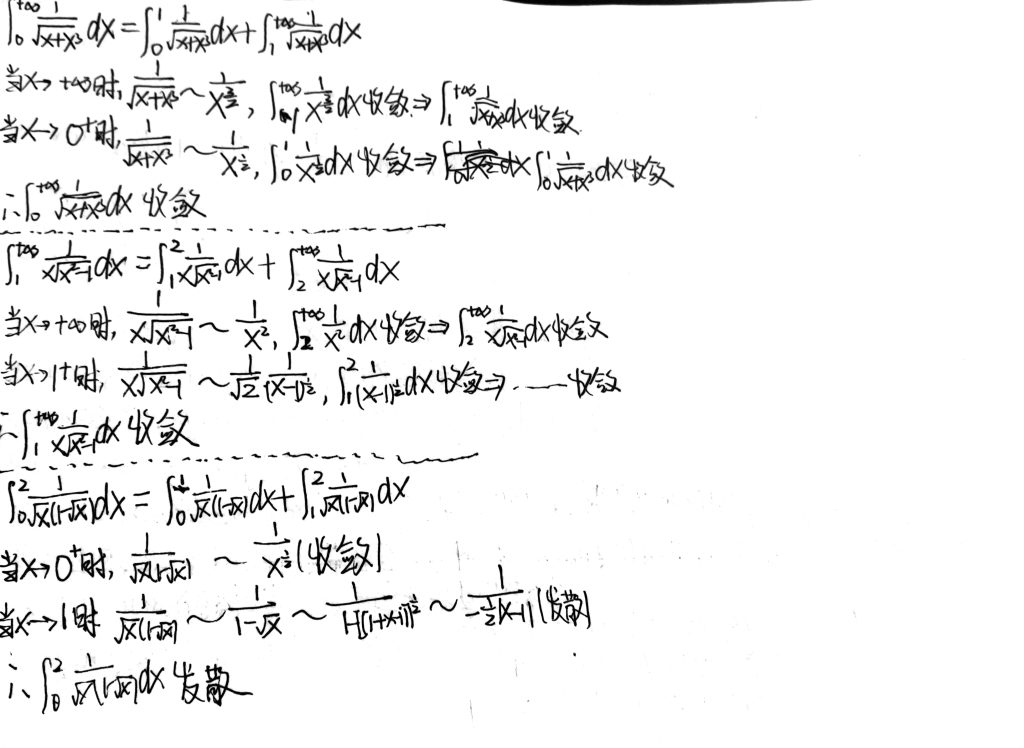 ∫₀^{+∞} 1/√(x+x³) dx = ∫₀¹ 1/√(x+x³) dx + ∫₁^{+∞} 1/√(x+x³) dx
当x→+∞时, 1/√(x+x³) ~ 1/x^{3/2}, ∫₁^{+∞} 1/x^{3/2} dx 收敛 ⇒ ∫₁^{+∞} 1/√(x+x³) dx 收敛
当x→0⁺时, 1/√(x+x³) ~ 1/x^{1/2}, ∫₀¹ 1/x^{1/2} dx 收敛 ⇒ ∫₀¹ 1/√(x+x³) dx 收敛
∴ ∫₀^{+∞} 1/√(x+x³) dx 收敛
∫₁^{+∞} 1/(x√(x²-1)) dx = ∫₁² 1/(x√(x²-1)) dx + ∫₂^{+∞} 1/(x√(x²-1)) dx
当x→+∞时, 1/(x√(x²-1)) ~ 1/x², ∫₂^{+∞} 1/x² dx 收敛 ⇒ ∫₂^{+∞} 1/(x√(x²-1)) dx 收敛
当x→1⁺时, 1/(x√(x²-1)) ~ 1/√2 · 1/(x-1)^{1/2}, ∫₁² 1/(x-1)^{1/2} dx 收敛 ⇒ …… 收敛
∴ ∫₁^{+∞} 1/(x√(x²-1)) dx 收敛
∫₀² 1/(√x(1-√x)) dx = ∫₀¹ 1/(√x(1-√x)) dx + ∫₁² 1/(√x(1-√x)) dx
当x→0⁺时, 1/(√x(1-√x)) ~ 1/x^{1/2} (收敛)
当x→1时 1/(√x(1-√x)) ~ 1/(1-√x) ~ 1/(1-[1+(x-1)]^{1/2}) ~ 1/(-½(x-1)) (发散)
∴ ∫₀² 1/(√x(1-√x)) dx 发散